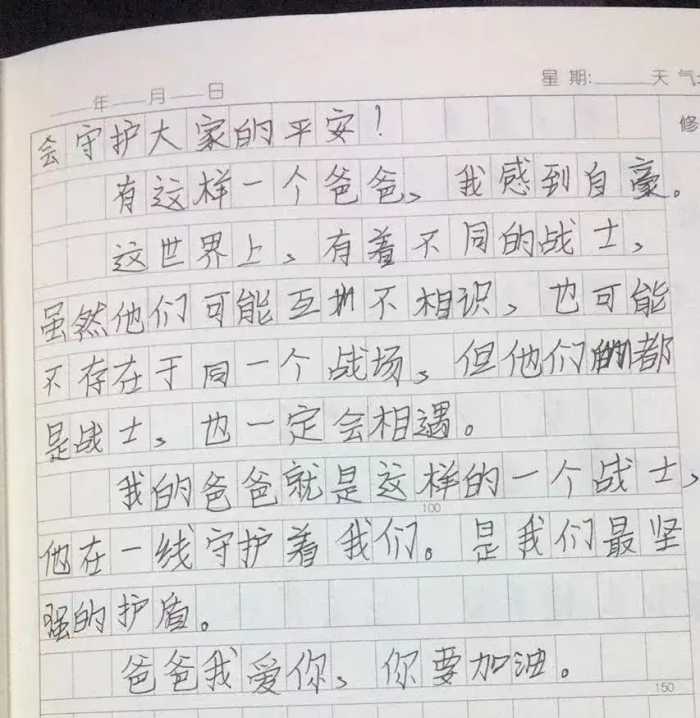 年 月 日 星期: 天气:
修
会守护大家的平安！
有这样一个爸爸、我感到自豪。
这世界上、有着不同的战士、
虽然他们可能互 不相识、也可能
不存在于同一个战场、但他们 都
是战士、也一定会相遇。
我的爸爸就是这样的一个战士、
100
他在一线守护着我们。是我们最坚
强的护盾。
爸爸我爱你、你要加油。
150